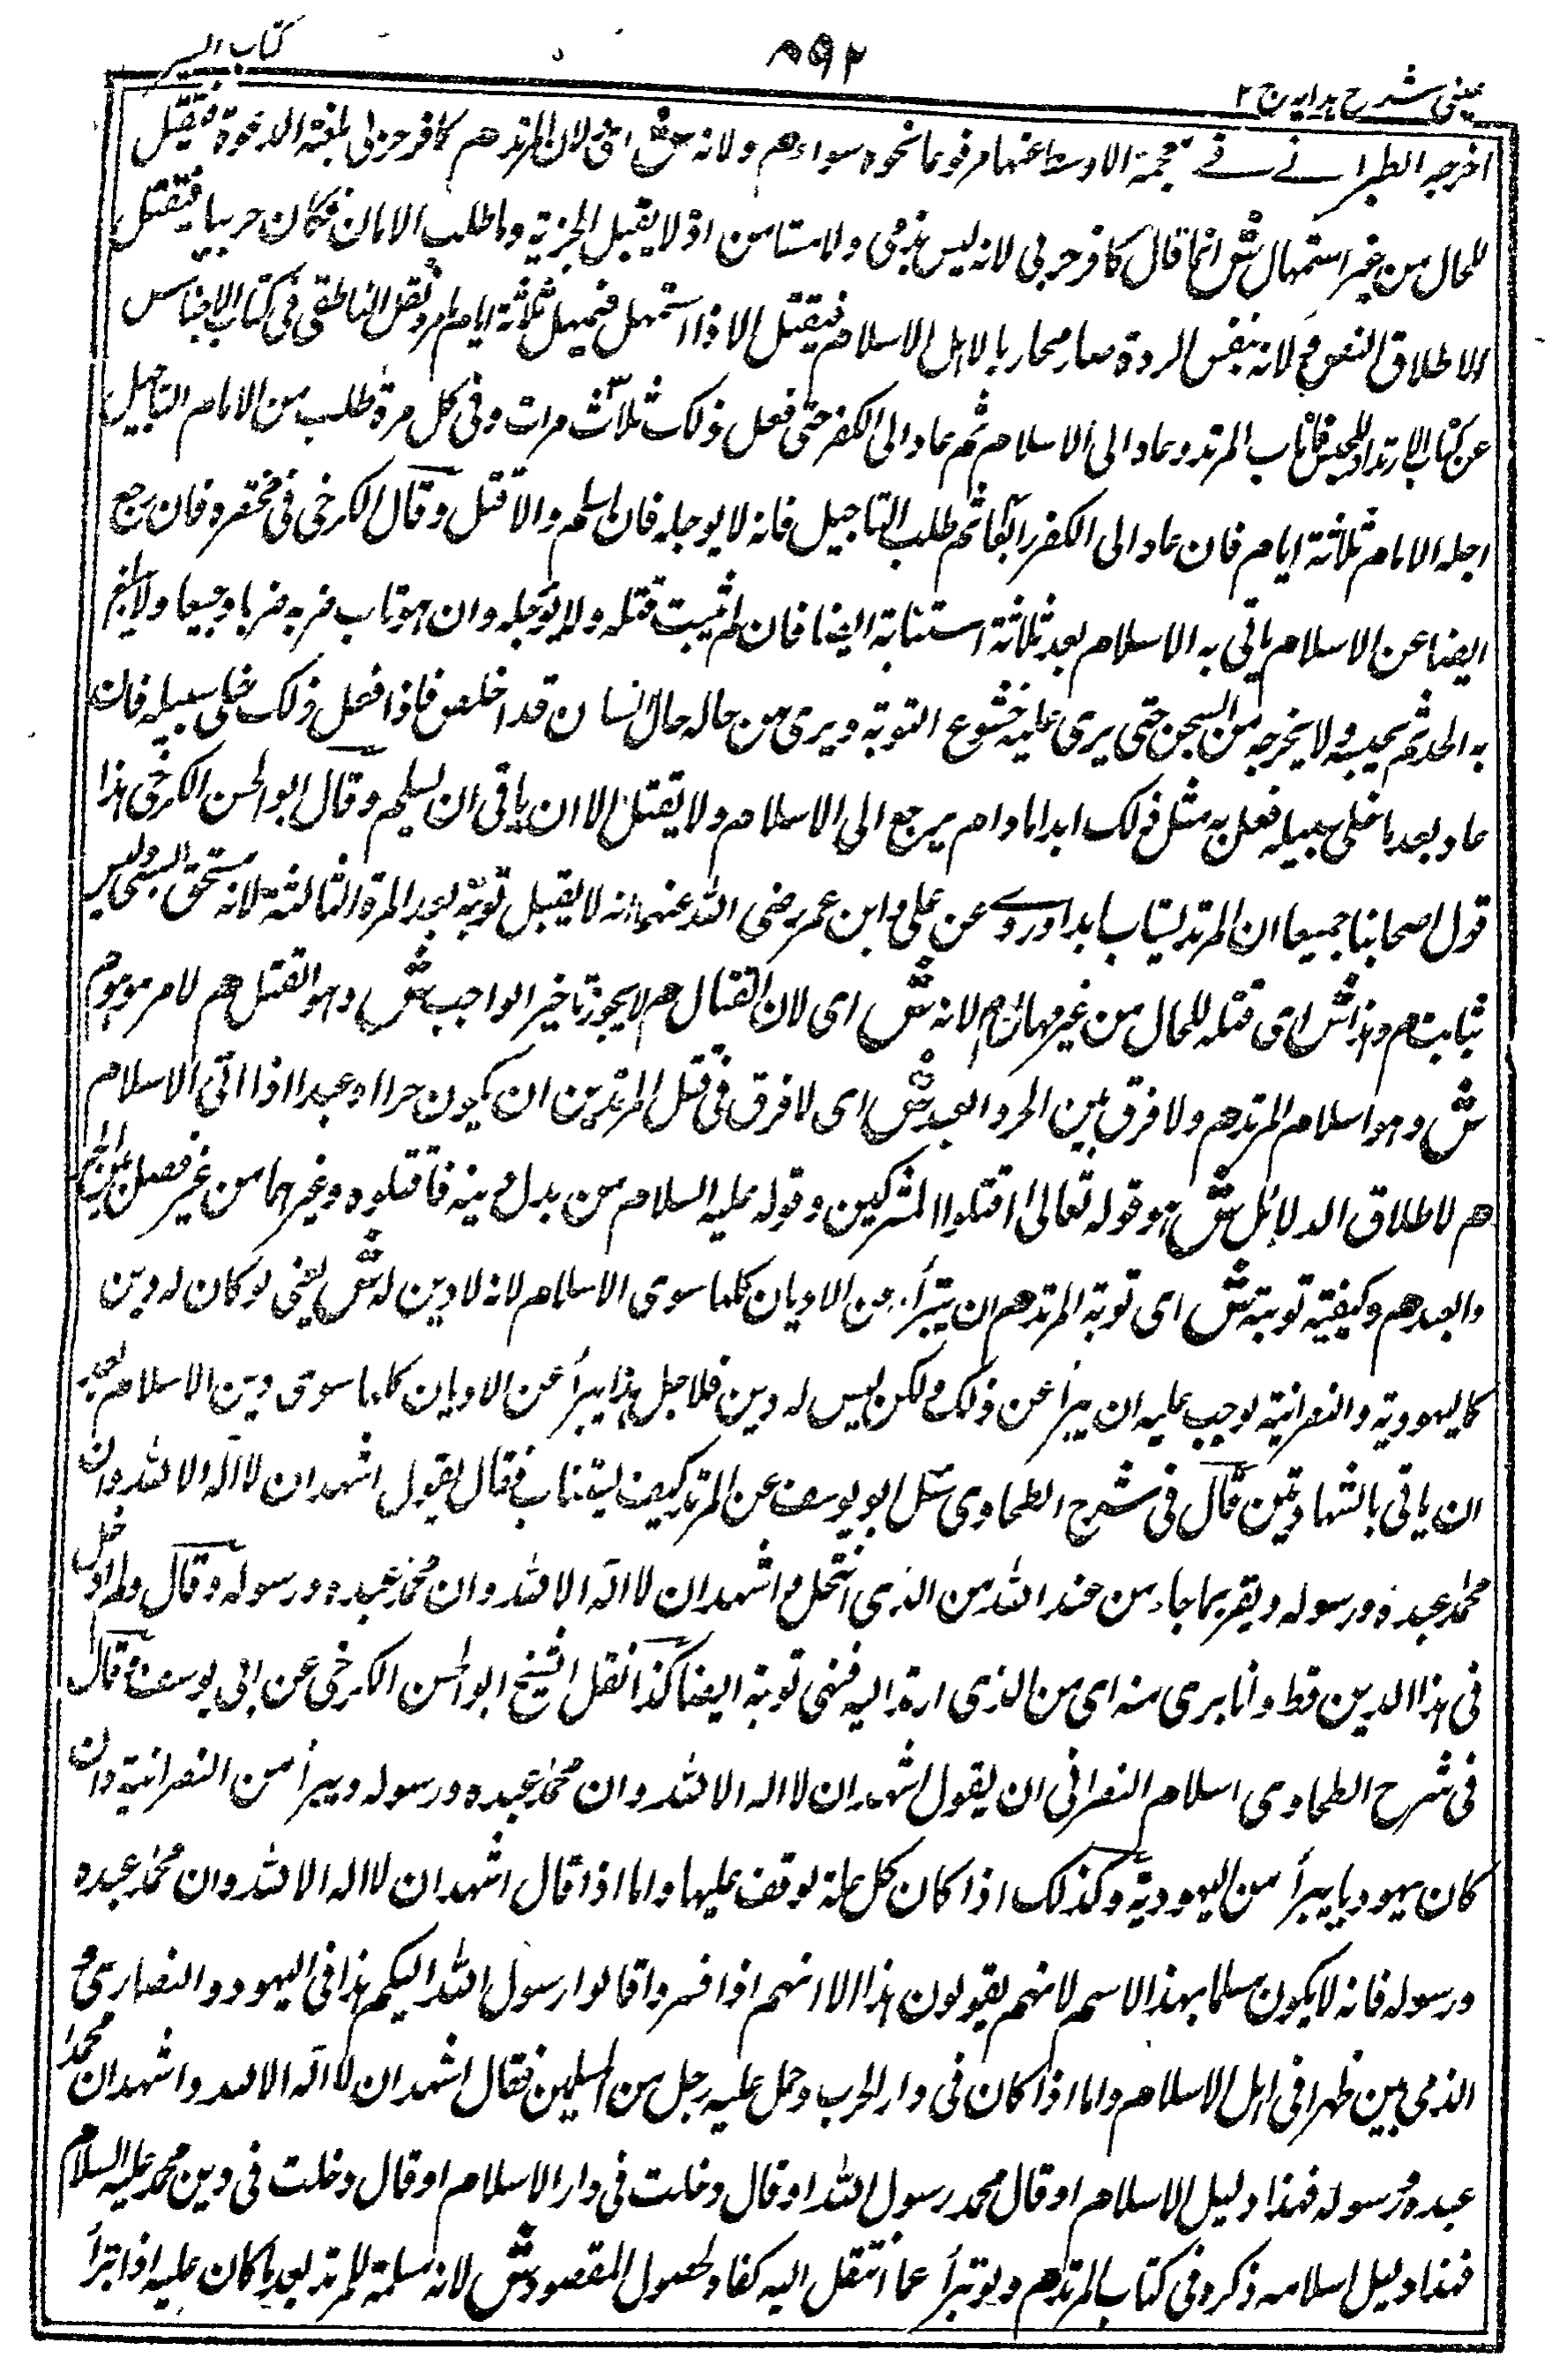 عینی شرح ہدایہ ج ٢
٨٩٢
کتاب السیر
اخرجہ الطبرانے فے معجمہ الاوسط عنہا مرفوعا نحوہ سواءم ولانہ ش اى لان المرتد هم کافر حربی بلغتہ الدعوة فیقتل
للحال من غیر استمہال ش انما قال کافر حربی لانہ لیس بذمی ولا مستامن اذ لا یقبل الجزیة وما طلب الامان فکان حربیا فیقتل
الاطلاق النصوص لانہ بنفس الردة صار محاربا لاہل الاسلام فیقتل الا اذا استمہل فیمہل ثلاثة ایام ونقل الناطقی فی کتاب الاجناس
عن کتاب الارتداد للحسن فان تاب المرتد وعاد الی الاسلام ثم عاد الی الکفر حتی فعل ذلک ثلاث مرات وفی کل مرة طلب من الامام التاجیل
اجلہ الامام ثلاثة ایام فان عاد الی الکفر رابعا ثم طلب التاجیل فانہ لا یوجلہ فان اسلم والا قتل وقال الکرخی فی مختصرہ فان رجع
ایضا عن الاسلام یاتی بہ الامام بعد ثلاثة استتابہ ایضا فان لم یتب قتلہ ولا یؤجلہ وان ہو تاب ضربہ ضربا وجیعا ولا یبلغ
بہ الحد ثم یحبسہ ولا یخرجہ من السجن حتی یری علیہ خشوع التوبة ویری من حالہ حال انسان قد اخلص فاذا فعل ذلک خلی سبیلہ فان
عاد بعد ما خلی سبیلہ فعل بہ مثل ذلک ابدا مادام یرجع الی الاسلام ولا یقتل الا ان یابی ان یسلم وقال ابو الحسن الکرخی ہذا
قول اصحابنا جمیعا ان المرتد یستتاب ابدا وروے عن علی وابن عمر رضی اللہ عنہما انہ لا یقبل توبتہ بعد المرة الثالثة لانہ مستخف
بتائب م وہذا ش ای قتلہ للحال من غیر مہلة م لانہ ش ای لان القتال م لا یجوز تاخیر الواجب ش وہو القتل هم لامر موہوم
ش وہو اسلام المرتد هم ولا فرق بین الحر والعبد ش ای لا فرق فی قتل المرتد بین ان یکون حرا او عبدا اذا ابی الاسلام
هم لاطلاق الدلائل ش ہو قولہ تعالی اقتلوا المشرکین وقولہ علیہ السلام من بدل دینہ فاقتلوہ وغیرہما من غیر فصل بین الحر
والعبد هم وکیفیة توبتہ ش ای توبة المرتد هم ان یتبرأ من الادیان کلہا سوی الاسلام لانہ لا دین لہ ش یعنی لو کان لہ دین
کالیہودیة والنصرانیة یوجب علیہ ان یبرأ عن ذلک ولکن لیس لہ دین فلاجل ہذا یبرأ عن الادیان کلہا سوی دین الاسلام بعد
ان یاتی بالشہادتین قال فی شرح الطحاوی سئل ابو یوسف عن المرتد کیف یستتاب فقال یقول اشہد ان لا الہ الا اللہ وان
محمدا عبدہ ورسولہ ویقر بما جاء من عند اللہ من الذی انتحل واشہد ان لا الہ الا اللہ وان محمدا عبدہ ورسولہ وقال ولم ادخل
فی ہذا الدین قط وانا بری منہ ای من الذی ارتد الیہ فہی توبة ایضا کذا نقل الشیخ ابو الحسن الکرخی عن ابی یوسف وقال
فی شرح الطحاوی اسلام النصرانی ان یقول اشہد ان لا الہ الا اللہ وان محمدا عبدہ ورسولہ ویبرأ من النصرانیة وان
کان یہودیا یبرأ من الیہودیة وکذلک اذا کان کل ملة توقف علیہا واما اذا قال اشہد ان لا الہ الا اللہ وان محمدا عبدہ
ورسولہ فانہ لا یکون مسلما بہذا الاسم لانہم یقولون ہذا الا انہم اذا فسروا قالوا رسول اللہ الیکم ہذا فی الیہود والنصاری
الذی بین ظہرانی اہل الاسلام واما اذا کان فی دار الحرب وحمل علیہ رجل من المسلمین فقال اشہد ان لا الہ الا اللہ واشہد ان محمدا
عبدہ ورسولہ فہذا دلیل الاسلام او قال محمد رسول اللہ او قال دخلت فی دار الاسلام او قال دخلت فی دین محمد علیہ السلام
فہذا دلیل اسلامہ ذکرہ فی کتاب المرتد هم ولو تبرأ عما انتقل الیہ کفاہ لحصول المقصود ش لانہ سلمة المرتد بعد ما کان علیہ اذا تبرأ